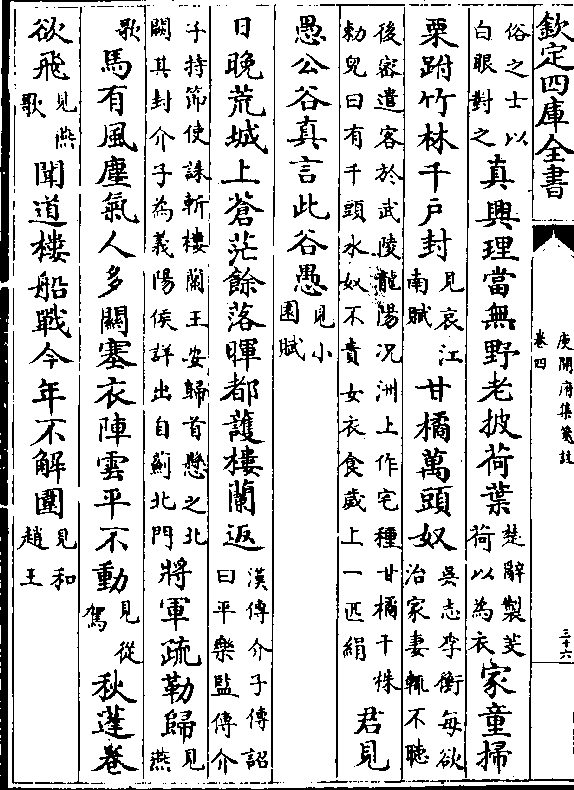 欽定四庫全書
庾開府集箋註
卷四
三十六
俗之士以
白眼對之
真興理當無野老披荷葉
楚辭製芰
荷以為衣
家童掃
栗跗竹林千戶封
見哀江
南賦
甘橘萬頭奴
吳志李衡每欲
治家妻輒不聽
後密遣客於武陵龍陽况洲上作宅種甘橘千株
勅兒曰有千頭水奴不責女衣食歲上一匹絹
君見
愚公谷真言此谷愚
見小
園賦
日晚荒城上蒼茫餘落暉都護樓蘭返
漢傳介子傳詔
曰平樂監傳介
子持節使誅斬樓蘭王安歸首懸之北
闕其封介子為義陽侯詳出自薊北門
將軍疏勒歸
見
燕
歌
馬有風塵氣人多關塞衣陣雲平不動
見從
駕
秋蓬卷
欲飛
見燕
歌
聞道樓船戰今年不解圍
見和
趙王